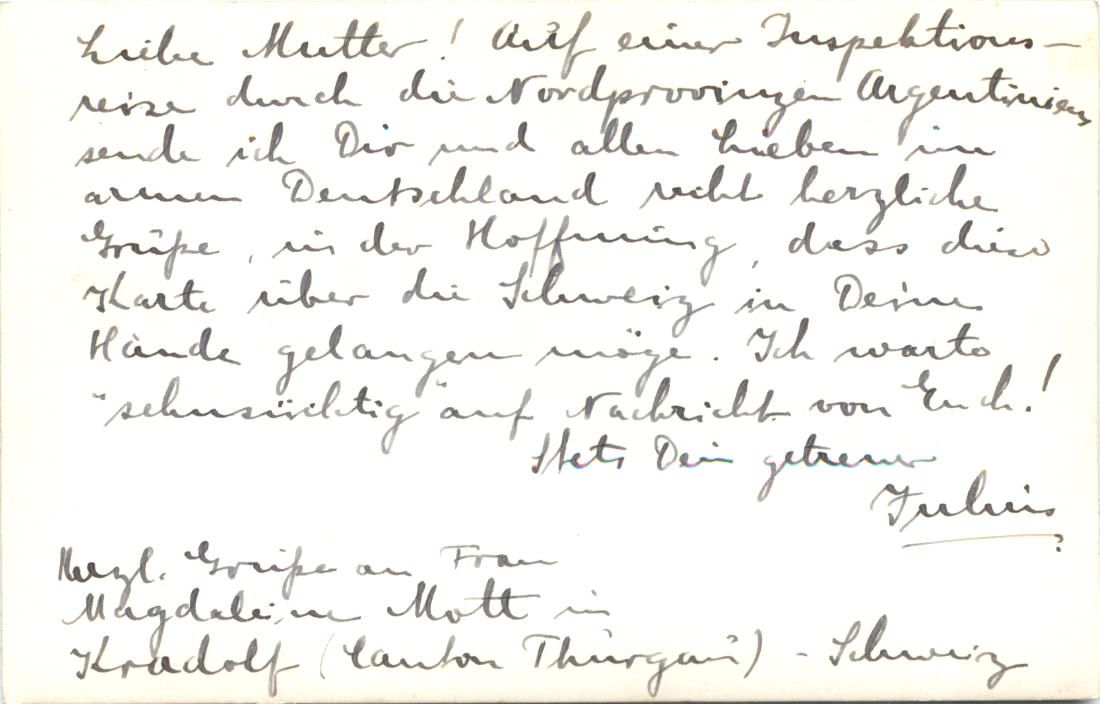 Liebe Mutter! Auf einer Inspektions-
reise durch die Nordprovinzen Argentiniens
sende ich Dir und allen Lieben im
armen Deutschland recht herzliche
Grüße, in der Hoffnung, dass diese
Karte über die Schweiz in Deine
Hände gelangen möge. Ich warte
"sehnsüchtig" auf Nachricht von Euch!
Stets Dein getreuer
Julius
Herzl. Grüße an Frau
Magdalein Mott in
Kradolf (Canton Thurgau) - Schweiz